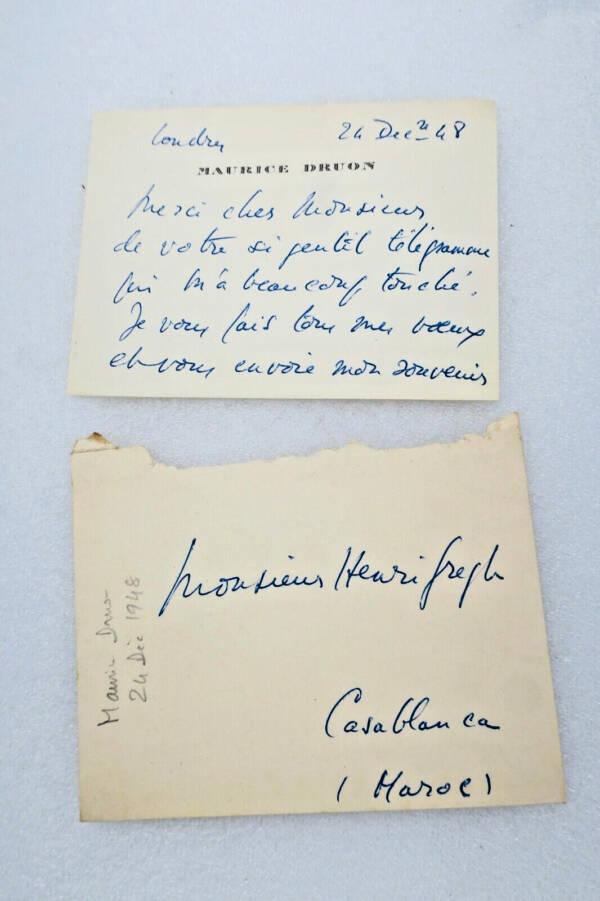 Londres 24 Décbre 48
MAURICE DRUON
Merci cher Monsieur
de votre si gentil télégramme
qui m'a beaucoup touché.
Je vous fais tous mes vœux
et vous envoie mon souvenir
Monsieur Henri Gregh
Casablanca
(Maroc)
Maurice Druon
24 Déc 1948